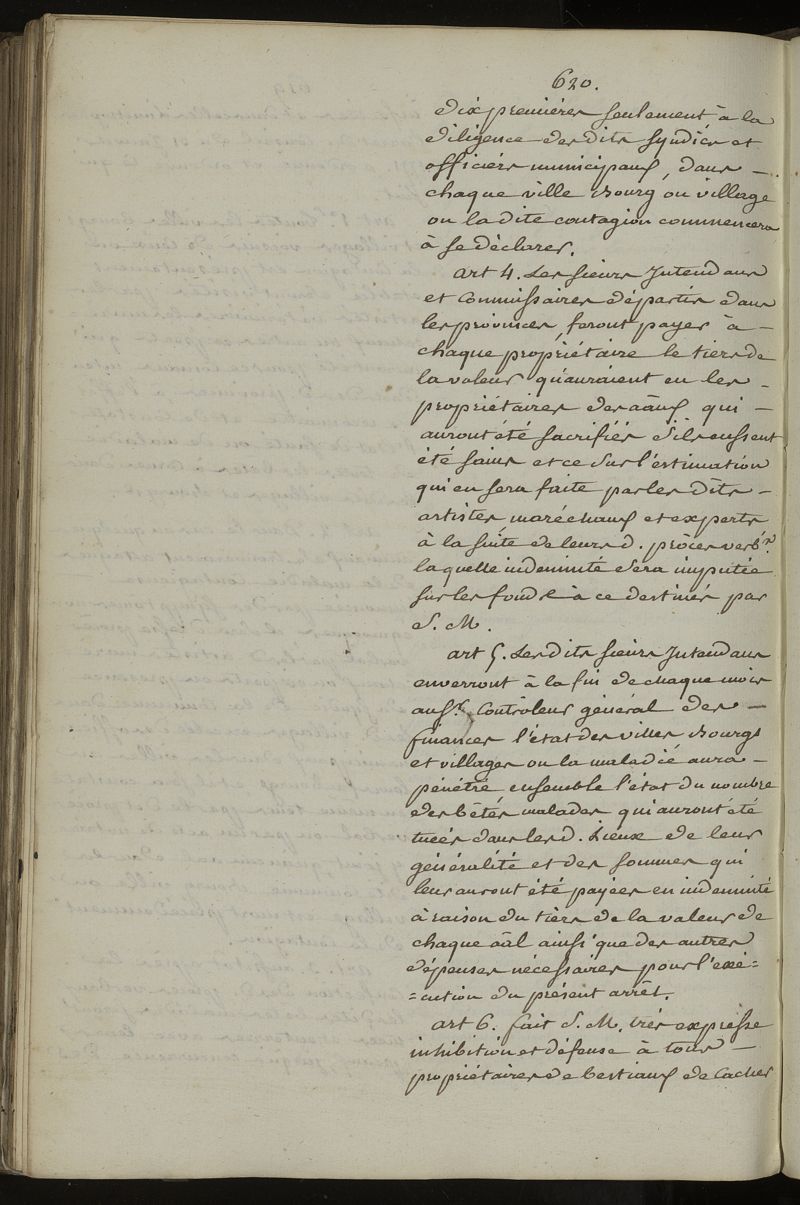 620.
dix premières seulement à la
diligence des dits syndics et
officiers municipaux, dans —
chaque ville bourg ou village
ou la dite contagion commencera
à se déclarer.
art 4. Les sieurs Intendans
et Commissaires départis dans
les provinces, feront payer à —
chaque propriétaire le tiers de
la valeur qu'auraient eu les —
propriétaires des aâux qui —
auront été sacrifiés s'ils eussent
été sains et ce sur l'estimation
qui en sera faite par les dits —
artistes, maréchaux et experts
à la suite de leurs d. procès verb.x
laquelle indemnité sera imputée
sur les fonds à ce destinés par
S. M.
art 5. Les dits sieurs Intendans
enverront à la fin de chaque mois
au s.r Contrôleur général des —
finances l'état des villes bourgs
et villages ou la maladie aura —
pénétré ensemble l'état du nombre
des bêtes malades qui auront été
tuées dans les d. Lieux de leur
généralité et des sommes qui
leur auront été payées en indemnité
à raison du tiers de la valeur de
chaque aâl ainsi que des autres
dépenses nécessaires pour l'exé=
=cution du présent arrêt.
art 6. fait S. M. très expresse
inhibition et défense à tous —
propriétaires de bestiaux de cacher